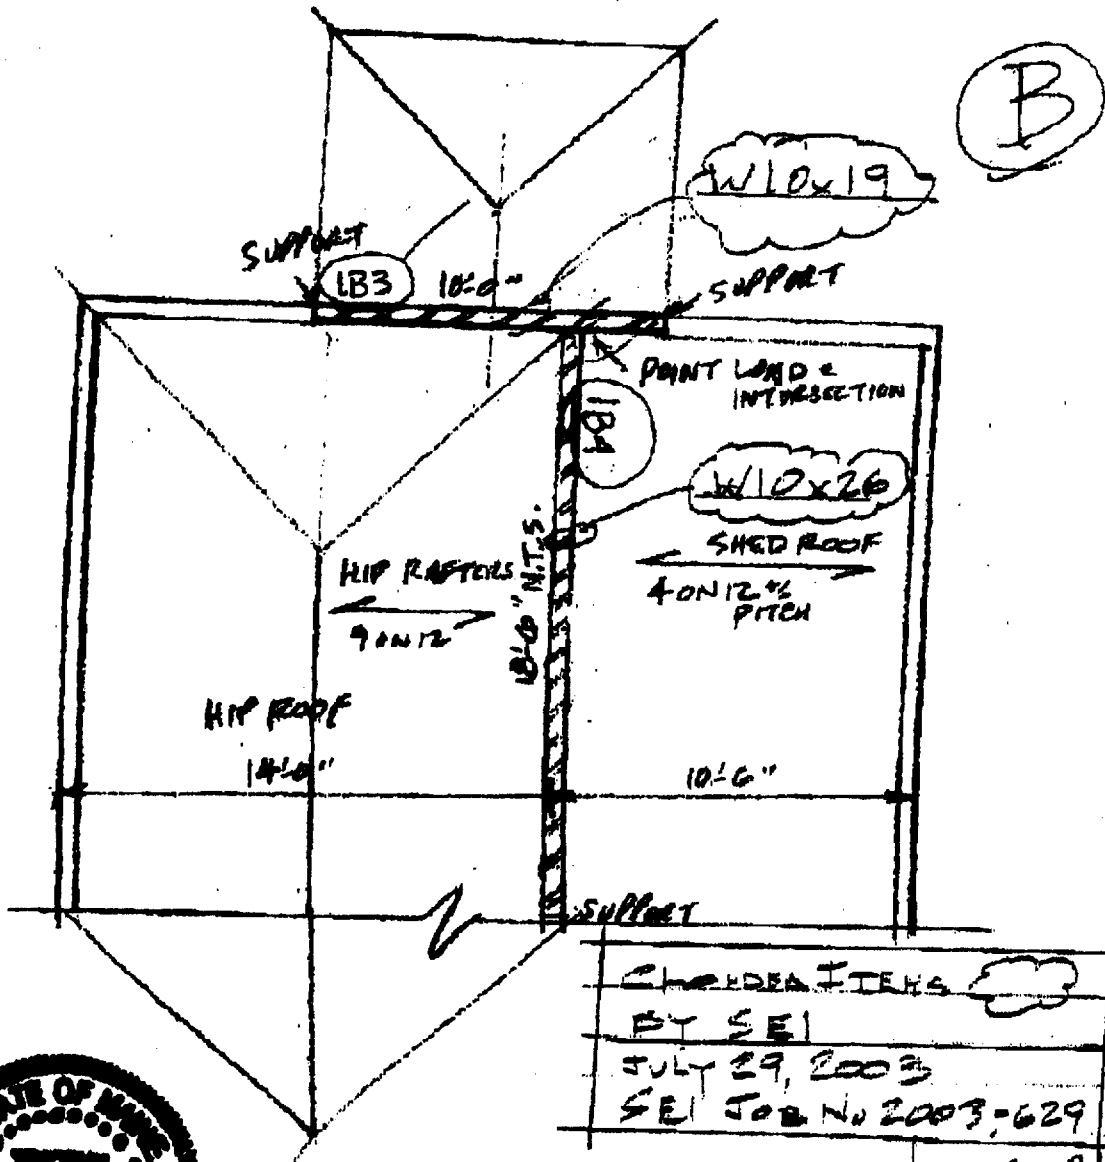 B
W10x19
SUPPORT
1B3
10'-0"
SUPPORT
POINT LOAD @
INTERSECTION
1B4
W10x26
SHED ROOF
4 ON 12 +/-
PITCH
HIP RAFTERS
9 ON 12
18'-0" N.T.S.
HIP ROOF
14'-0"
10'-6"
SUPPORT
CLOUDED ITEMS
BY SEI
JULY 29, 2003
SEI JOB No 2003-629
ATE OF MAINE